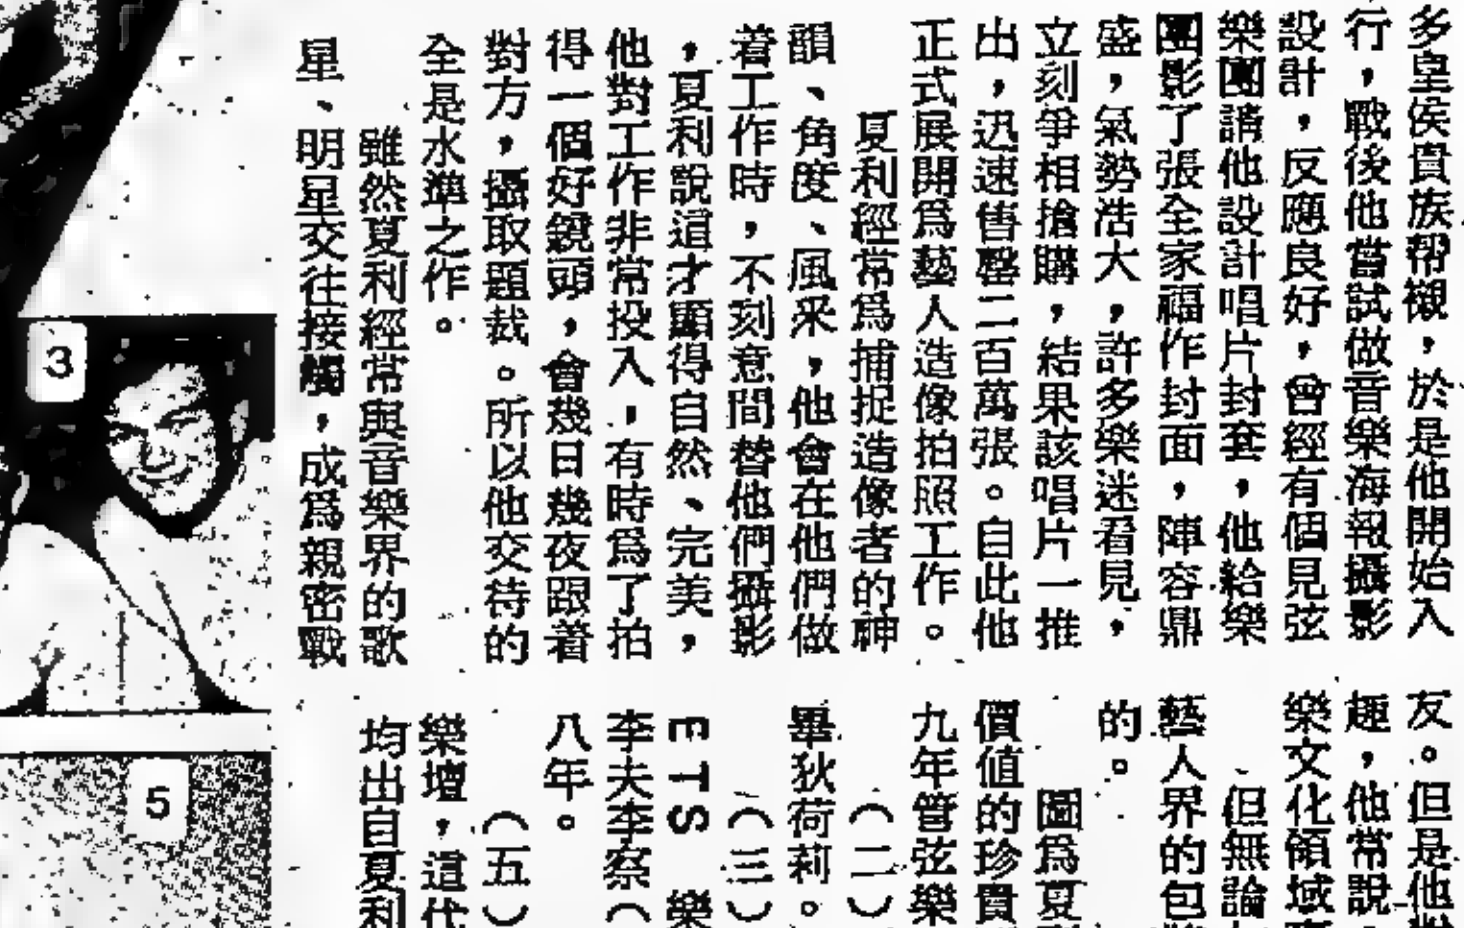 多皇侯貴族帮襯，於是他開始入
行，戰後他嘗試做音樂海報攝影
設計，反應良好，曾經有個見弦
樂團請他設計唱片封套，他給樂
團影了張全家福作封面，陣容鼎
盛，氣勢浩大，許多樂迷看見，
立刻爭相搶購，結果該唱片一推
出，迅速售罄二百萬張。自此他
正式展開爲藝人造像拍照工作。
夏利經常爲捕捉造像者的神
韻、角度、風采，他會在他們做
着工作時，不刻意間替他們攝影
，夏利說這才顯得自然、完美，
他對工作非常投入，有時爲了拍
得一個好鏡頭，會幾日幾夜跟着
對方，攝取題裁。所以他交待的
全是水準之作。
雖然夏利經常與音樂界的歌
星、明星交往接觸，成爲親密戰
友。但是他對
趣，他常說，
樂文化領域
但無論
藝人界的包裝
的。
圖爲夏利
價值的珍貴
九年管弦樂
（二）
畢狄荷莉。
（三）
ETS 樂
李夫李察（
八年。
（五）
樂壇，這代
均出自夏利
3
5